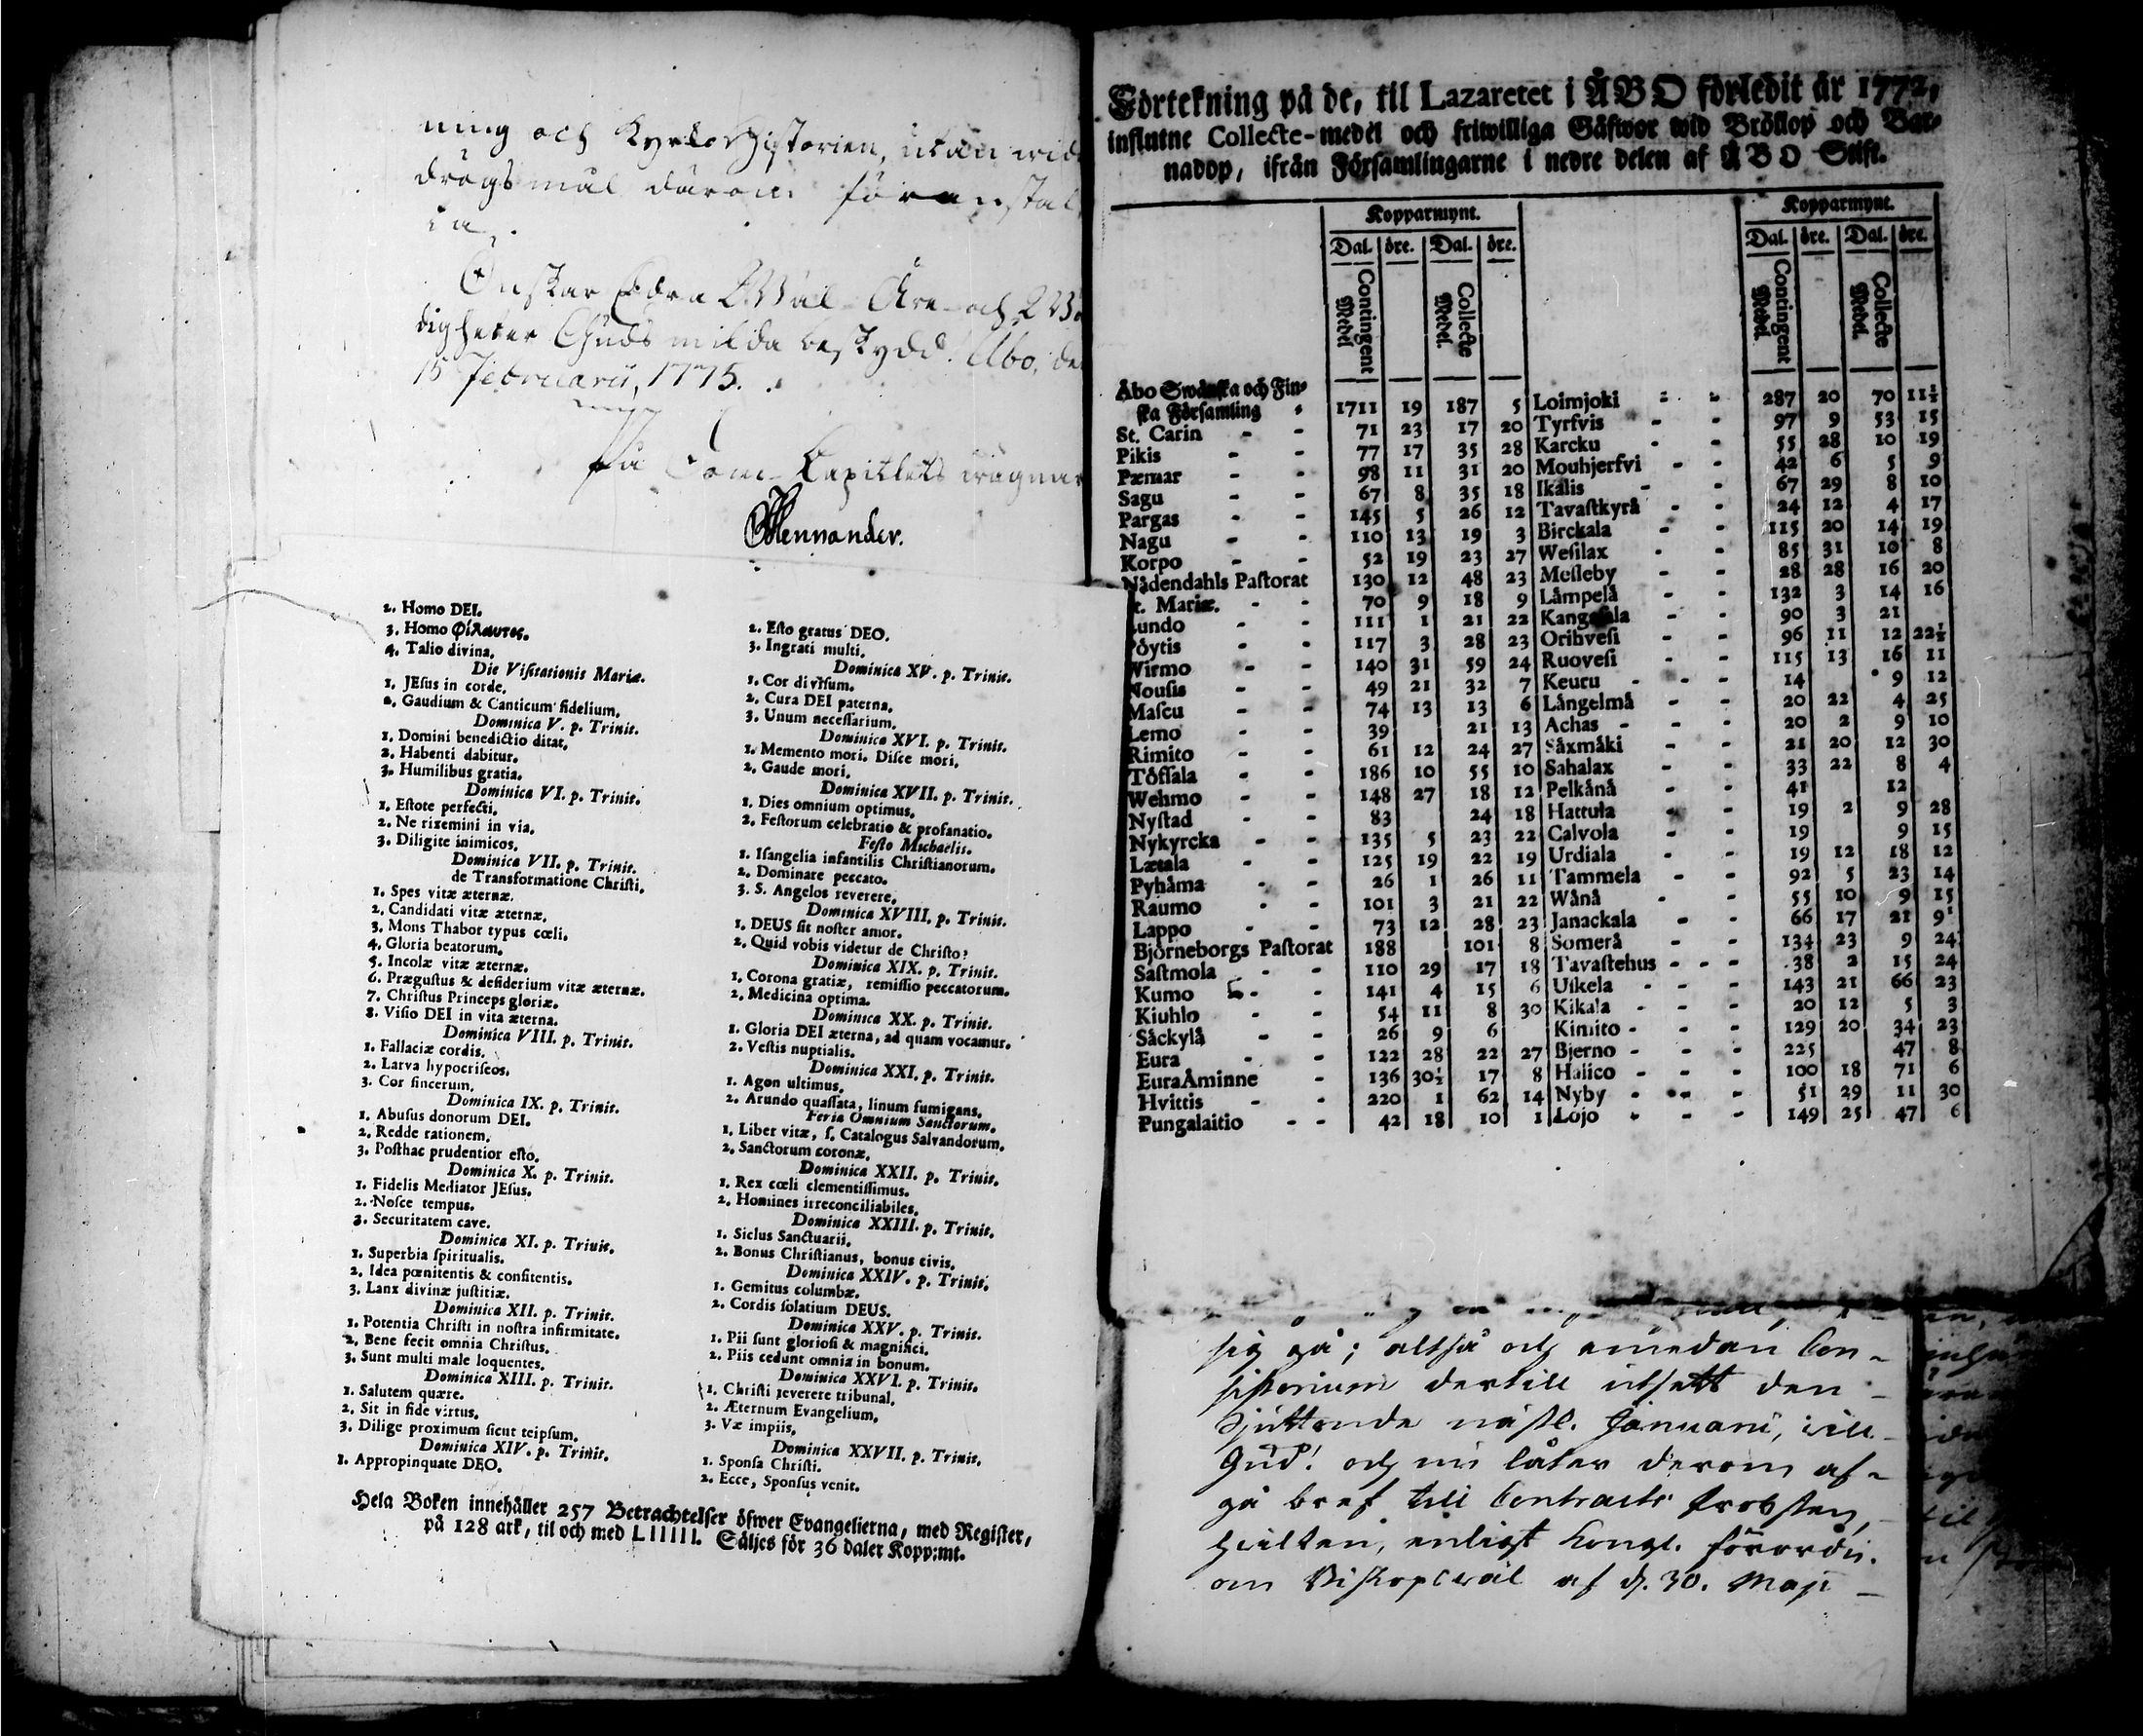 ning och Kyrko Historien, utan wid
drögsmål därom föranstal
ta.
Önskar Edra Wäl Äre och Wö
digheter Guds milda beskydd. Åbo, de
15 Februarii, 1775.
På Dom Capitlets wägnar
Mennander.
2. Homo DEI.
3. Homo Φίλαυτος.
4. Talio divina.
Die Visitationis Mariæ.
1. JEsus in corde.
2. Gaudium & Canticum fidelium.
Dominica V. p. Trinit.
1. Domini benedictio ditat.
2. Habenti dabitur.
3. Humilibus gratia.
Dominica VI. p. Trinit.
1. Estote perfecti.
2. Ne rixemini in via.
3. Diligite inimicos.
Dominica VII. p. Trinit.
de Transformatione Christi.
1. Spes vitæ æternæ.
2. Candidati vitæ æternæ.
3. Mons Thabor typus cœli.
4. Gloria beatorum.
5. Incolæ vitæ æternæ.
6. Prægustus & desiderium vitæ æternæ.
7. Christus Princeps gloriæ.
8. Visio DEI in vita æterna.
Dominica VIII. p. Trinit.
1. Fallaciæ cordis.
2. Larva hypocriseos.
3. Cor sincerum.
Dominica IX. p. Trinit.
1. Abusus donorum DEI.
2. Redde rationem.
3. Posthac prudentior esto.
Dominica X. p. Trinit.
1. Fidelis Mediator JEsus.
2. Nosce tempus.
3. Securitatem cave.
Dominica XI. p. Trinit.
1. Superbia spiritualis.
2. Idea pœnitentis & confitentis.
3. Lanx divinæ justitiæ.
Dominica XII. p. Trinit.
1. Potentia Christi in nostra infirmitate.
2. Bene fecit omnia Christus.
3. Sunt multi male loquentes.
Dominica XIII. p. Trinit.
1. Salutem quære.
2. Sit in fide virtus.
3. Dilige proximum sicut teipsum.
Dominica XIV. p. Trinit.
1. Appropinquate DEO.
2. Esto gratus DEO.
3. Ingrati multi.
Dominica XV. p. Trinit.
1. Cor divisum.
2. Cura DEI paterna.
3. Unum necessarium.
Dominica XVI. p. Trinit.
1. Memento mori. Disce mori.
2. Gaude mori.
Dominica XVII. p. Trinit.
1. Dies omnium optimus.
2. Festorum celebratio & profanatio.
Festo Michaelis.
1. Isangelia infantilis Christianorum.
2. Dominare peccato.
3. S. Angelos reverere.
Dominica XVIII. p. Trinit.
1. DEUS sit noster amor.
2. Quid vobis videtur de Christo?
Dominica XIX. p. Trinit.
1. Corona gratiæ, remissio peccatorum.
2. Medicina optima.
Dominica XX. p. Trinit.
1. Gloria DEI æterna, ad quam vocamur.
2. Vestis nuptialis.
Dominica XXI. p. Trinit.
1. Agon ultimus.
2. Arundo quassata, linum fumigans.
Feria Omnium Sanctorum.
1. Liber vitæ, s. Catalogus Salvandorum.
2. Sanctorum coronæ.
Dominica XXII. p. Trinit.
1. Rex cœli clementissimus.
2. Homines irreconciliabiles.
Dominica XXIII. p. Trinit.
1. Siclus Sanctuarii.
2. Bonus Christianus, bonus civis.
Dominica XXIV. p. Trinit.
1. Gemitus columbæ.
2. Cordis solatium DEUS.
Dominica XXV. p. Trinit.
1. Pii sunt gloriosi & magnifici.
2. Piis cedunt omnia in bonum.
Dominica XXVI. p. Trinit.
1. Christi reverere tribunal.
2. Æternum Evangelium.
3. Væ impiis.
Dominica XXVII. p. Trinit.
1. Sponsa Christi.
2. Ecce, Sponsus venit.
Hela Boken innehåller 257 Betrachtelser öfwer Evangelierna, med Register,
på 128 ark, til och med Llllll. Säljes för 36 daler Kopp:mt.
Förtekning på de, til Lazaretet i ÅBO förledit år 1772,
influtne Collecte-medel och friwilliga Gåfwor wid Bröllop och Bar-
nadop, ifrån Församlingarne i nedre delen af ÅBO Stift.
Kopparmynt. Kopparmynt.
Dal. öre. Dal. öre. Dal. öre. Dal. öre.
Contingent Medel Collecte Medel. Contingent Medel. Collecte Medel.
Åbo Swänska och Fin-
ska Församling - 1711 19 187 5 Loimjoki - - 287 20 70 11½
St. Carin - - 71 23 17 20 Tyrfvis - - 97 9 53 15
Pikis - - 77 17 35 28 Karcku - - 55 28 10 19
Pæmar - - 98 11 31 20 Mouhjerfvi - - 42 6 5 9
Sagu - - 67 8 35 18 Ikalis - - 67 29 8 10
Pargas - - 145 5 26 12 Tavastkyrå - - 24 12 4 17
Nagu - - 110 13 19 3 Birckala - - 115 20 14 19
Korpo - - 52 19 23 27 Wesilax - - 85 31 10 8
Nådendahls Pastorat 130 12 48 23 Messeby - - 28 28 16 20
t. Mariæ. - - 70 9 18 9 Låmpelå - - 132 3 14 16
undo - - 111 1 21 22 Kangasala - - 90 3 21
Pöytis - - 117 3 28 23 Orihvesi - - 96 11 12 22½
Wirmo - - 140 31 59 24 Ruovesi - - 115 13 16 11
Nousis - - 49 21 32 7 Keuru - - - 14 9 12
Mascu - - 74 13 13 6 Långelmå - - 20 22 4 25
Lemo - 39 21 13 Achas - - 20 2 9 10
Rimito - - 61 12 24 27 Såxmåki - - 21 20 12 30
Töfsala - - 186 10 55 10 Sahalax - - 33 22 8 4
Wehmo - - 148 27 18 12 Pelkånå - - 41 12
Nystad - - 83 24 18 Hattula - - 19 2 9 28
Nykyrcka - - 135 5 23 22 Calvola - - 19 9 15
Lætala - - 125 19 22 19 Urdiala - - 19 12 18 12
Pyhåma - - 26 1 26 11 Tammela - - 92 5 23 14
Raumo - - 101 3 21 22 Wånå - - 55 10 9 15
Lappo - - 73 12 28 23 Janackala - - 66 17 21 9
Björneborgs Pastorat 188 101 8 Somerå - - 134 23 9 24
Sastmola - - 110 29 17 18 Tavastehus - - - 38 2 15 24
Kumo - - 141 4 15 6 Uskela - - - 143 21 66 23
Kiuhlo - - 54 11 8 30 Kikala - - - 20 12 5 3
Såckylå - - 26 9 6 Kimito - - - 129 20 34 23
Eura - - 122 28 22 27 Bjerno - - - 225 47 8
EuraÅminne - 136 30½ 17 8 Halico - - - 100 18 71 6
Hvittis - - 220 1 62 14 Nyby - - - 51 29 11 30
Pungalaitio - - 42 18 10 1 Lojo - - - 149 25 47 6
sig gå; altså och emedan Con-
sistorium dertill utsatt den
Sjuttonde näst. Januarii, will
Gud! och nu låter derom af-
gå bref till Contracts Probsten,
hvilken, enligt Kongl. förordn.
om Biskopswal af d. 30. Maji